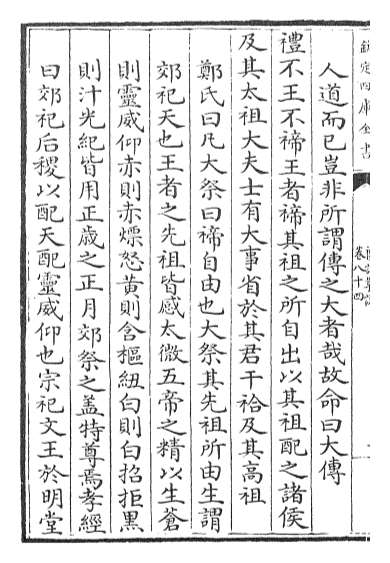 欽定四庫全書
卷八十四
人道而已豈非所謂傳之大者哉故命曰大傳
禮不王不禘王者禘其祖之所自出以其祖配之諸侯
及其太祖大夫士有大事省於其君干祫及其高祖
鄭氏曰凡大祭曰禘自由也大祭其先祖所由生謂
郊祀天也王者之先祖皆感太微五帝之精以生蒼
則靈威仰赤則赤熛怒黄則含樞紐白則白招拒黑
則汁光紀皆用正歲之正月郊祭之盖特尊焉孝經
曰郊祀后稷以配天配靈威仰也宗祀文王於明堂